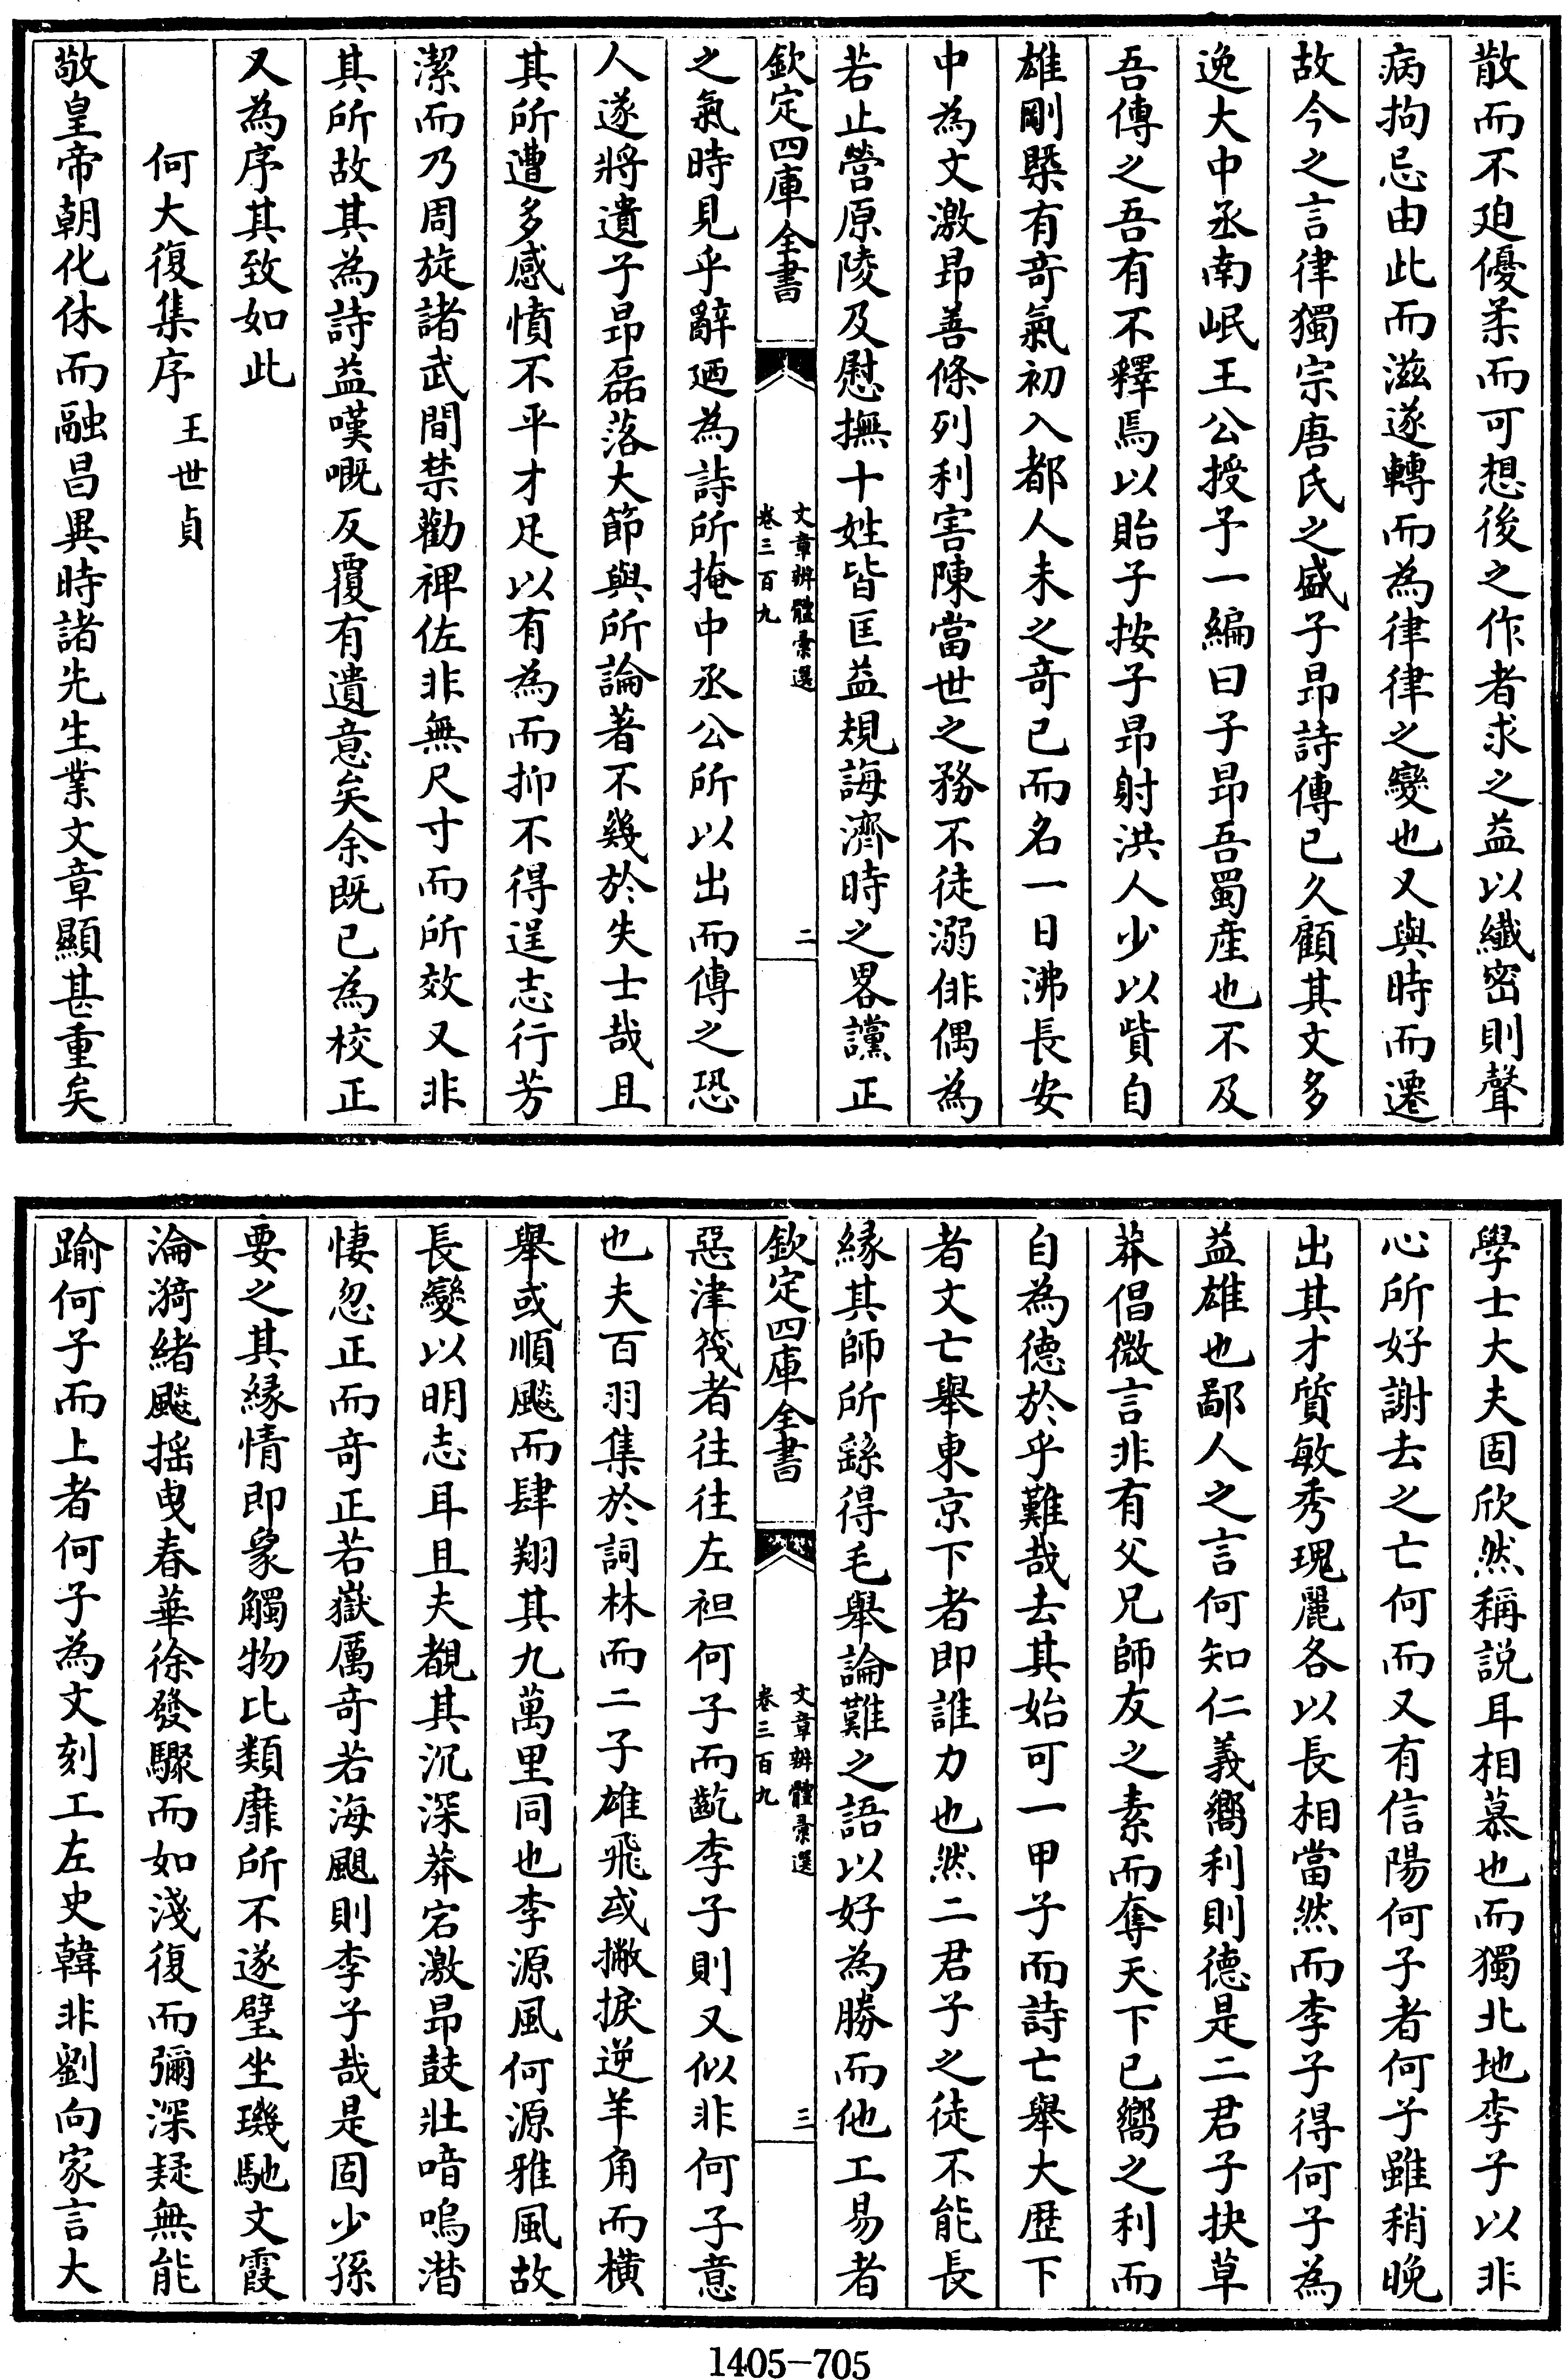 散而不迫優柔而可想後之作者求之益以纖密則聲
病拘忌由此而滋遂轉而為律律之變也又與時而遷
故今之言律獨宗唐氏之盛子昂詩傳已久顧其文多
逸大中丞南岷王公授予一編曰子昂吾蜀産也不及
吾傳之吾有不釋焉以貽子按子昂射洪人少以貲自
雄剛槩有奇氣初入都人未之奇已而名一日沸長安
中為文激昂善條列利害陳當世之務不徒溺俳偶為
若止營原陵及慰撫十姓皆匡益規誨濟時之畧讜正
欽定四庫全書
文章辨體彚選
卷三百九
二
之氣時見乎辭廼為詩所掩中丞公所以出而傳之恐
人遂將遺子昂磊落大節與所論著不幾於失士哉且
其所遭多感憤不平才足以有為而抑不得逞志行芳
潔而乃周旋諸武間禁勸裨佐非無尺寸而所效又非
其所故其為詩益嘆嘅反覆有遺意矣余既已為校正
又為序其致如此
何大復集序 王世貞
敬皇帝朝化休而融昌異時諸先生業文章顯甚重矣
學士大夫固欣然稱説耳相慕也而獨北地李子以非
心所好謝去之亡何而又有信陽何子者何子雖稍晚
出其才質敏秀瑰麗各以長相當然而李子得何子為
益雄也鄙人之言何知仁義嚮利則德是二君子抉草
莽倡微言非有父兄師友之素而奪天下已嚮之利而
自為德於乎難哉去其始可一甲子而詩亡舉大歴下
者文亡舉東京下者即誰力也然二君子之徒不能長
緣其師所繇得毛舉論難之語以好為勝而他工易者
欽定四庫全書
文章辨體彚選
卷三百九
三
惡津筏者往往左袒何子而齕李子則又似非何子意
也夫百羽集於詞林而二子雄飛或撇捩逆羊角而横
舉或順飈而肆翔其九萬里同也李源風何源雅風故
長變以明志耳且夫覩其沉深莽宕激昂鼓壯喑嗚潛
悽忽正而奇正若嶽厲奇若海颶則李子哉是固少孫
要之其緣情即象觸物比類靡所不遂璧坐璣馳文霞
淪漪緒飈揺曳春華徐發驟而如淺復而彌深疑無能
踰何子而上者何子為文刻工左史韓非劉向家言大
1405-705